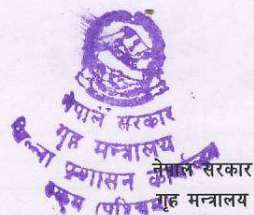 नेपाल सरकार
गृह मन्त्रालय
जिल्ला प्रशासन कार्यालय
नेपाल सरकार
गृह मन्त्रालय